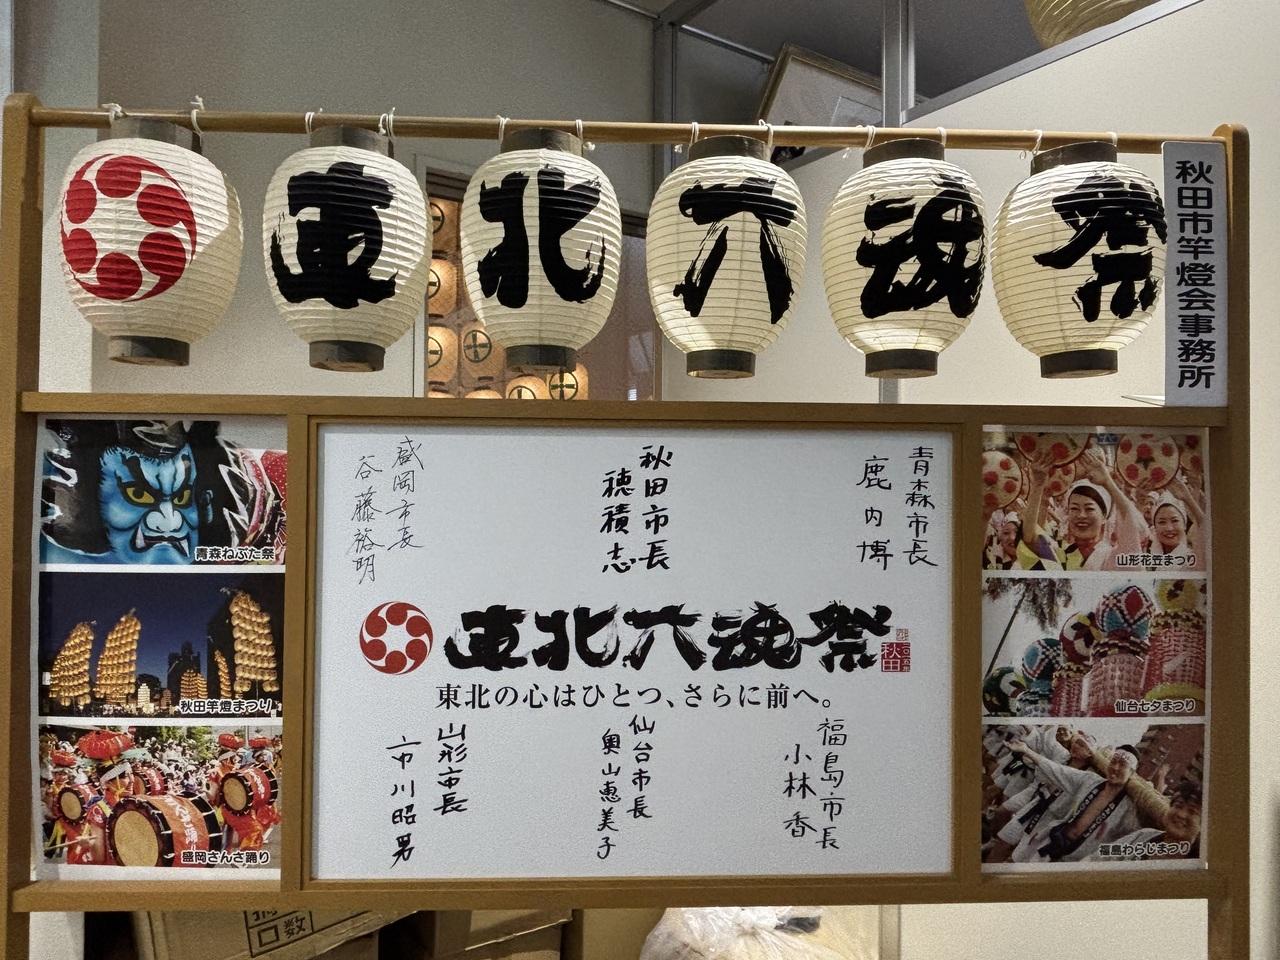 東北六魂祭
秋田市竿燈会事務所
青森ねぶた祭
秋田竿燈まつり
盛岡さんさ踊り
青森市長
鹿内博
秋田市長
穂積志
盛岡市長
谷藤裕明
東北六魂祭
秋田
東北の心はひとつ、さらに前へ。
福島市長
小林香
仙台市長
奥山恵美子
山形市長
市川昭男
山形花笠まつり
仙台七夕まつり
福島わらじまつり
口数